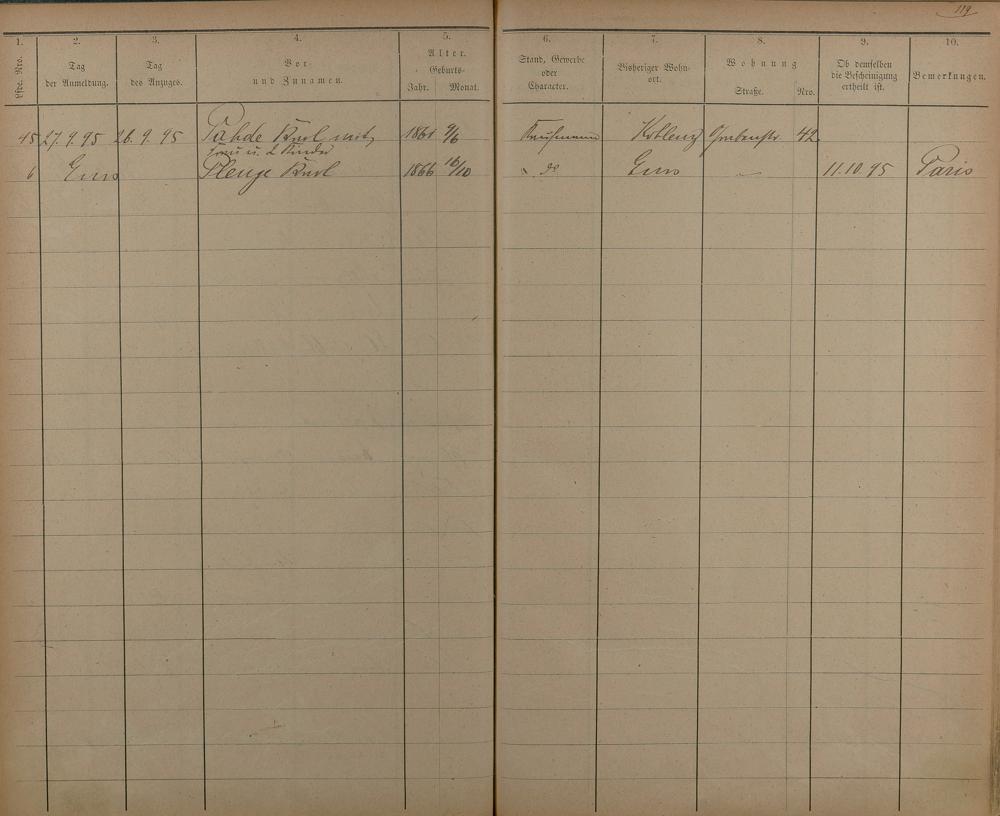 119
1. 2. 3. 4. 5. 6. 7. 8. 9. 10.
Lfde. Nro.
Tag
der Anmeldung.
Tag
des Anzuges.
Vor-
und Zunamen.
Alter.
Geburts-
Jahr. Monat.
Stand, Gewerbe
oder
Character.
Bisheriger Wohn-
ort.
Wohnung
Straße. Nro.
Ob demselben
die Bescheinigung
ertheilt ist.
Bemerkungen.
45 27.9.95 26.9.95 Pahde Karl mit 1861 9/6 Kaufmann Koblenz 42
Frau u. 2 Kinder
6 Ems Plenge Karl 1866 16/10 do Ems 11.10.95 Paris